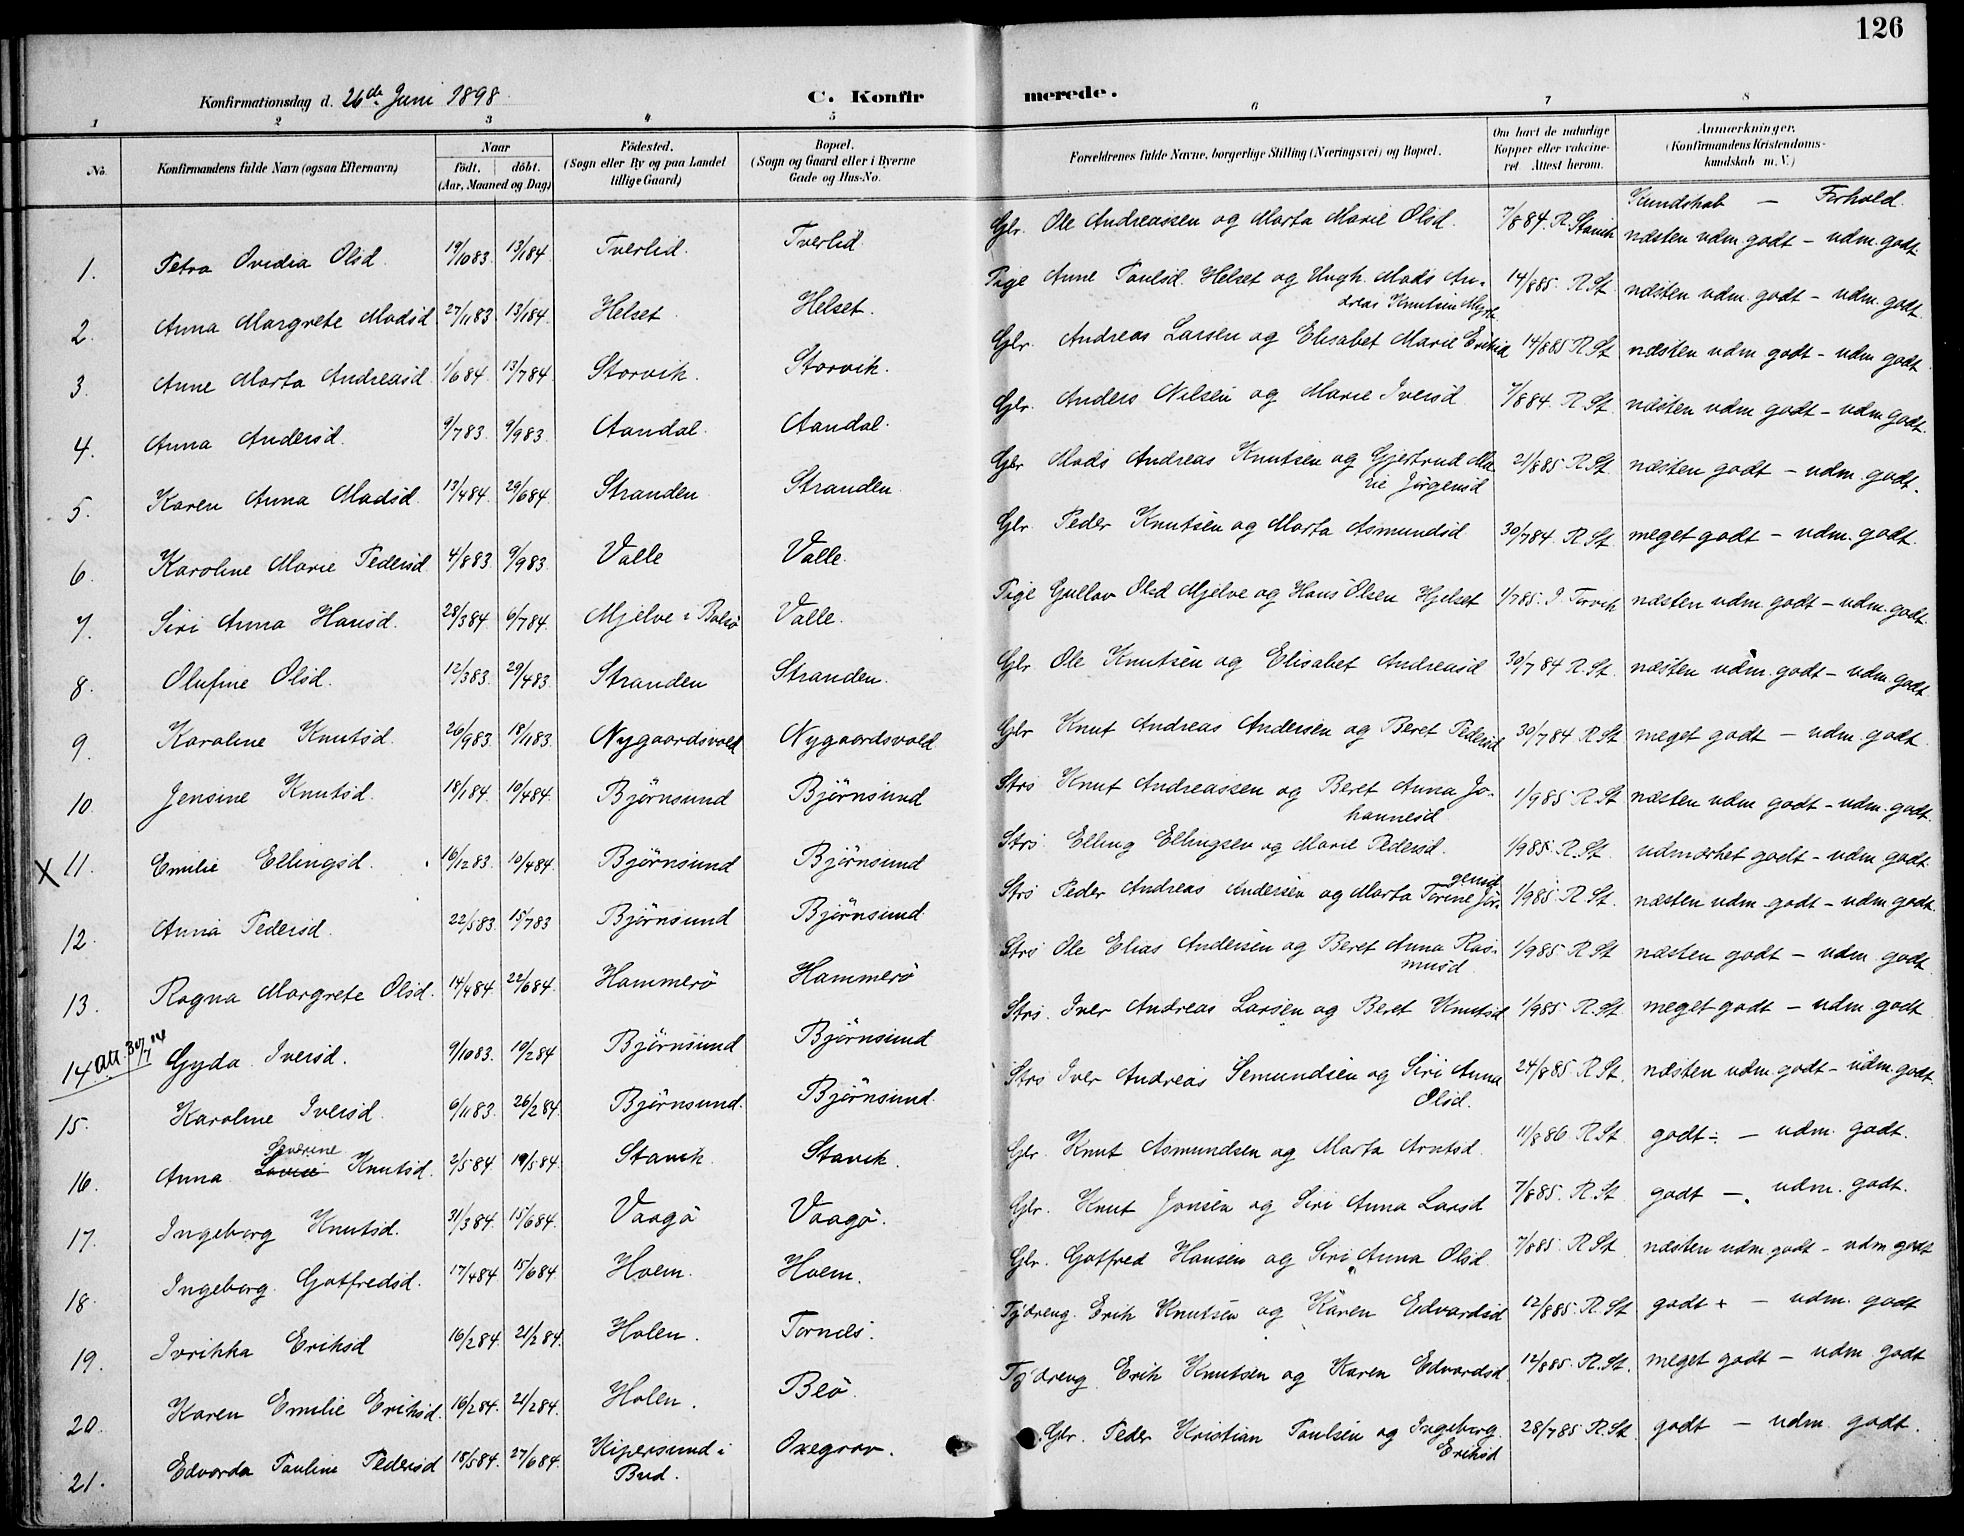 126
Konfirmationsdag d. 26de Juni 1898. C. Konfirmerede.
1 2 3 4 5 6 7 8
No. Konfirmandens fulde Navn (ogsaa Efternavn) Naar født. døbt. (Aar, Maaned og Dag) Fødested. (Sogn eller By og paa Landet tillige Gaard) Bopæl. (Sogn og Gaard eller i Byerne Gade og Hus-No. Forældrenes fulde Navne, borgerlige Stilling (Næringsvei) og Bopæl. Om havt de naturlige Kopper eller vakcineret. Attest herom. Anmærkninger. (Konfirmandens Kristendomskundskab m. V.)
Kundskab — Forhold
1. Petra Ovidia Olsd. 19/1083 13/184 Tverlid. Tverlid. Gbr. Ole Andreassen og Marta Marie Olsd. 7/884. R. Stavik næsten udm. godt - udm. godt
2. Anna Margrete Madsd 27/1183 13/184. Helset. Helset. Pige Anne Paulsd. Helset og Ungk. Mads Andreas Knutsen Myrb. 14/885. R. St. næsten udm. godt - udm. godt.
3. Anne Marta Andreasd. 1/684. 13/784 Storvik. Storvik. Gbr. Andreas Larsen og Elisabet Marie Eriksd 14/885 R St næsten udm godt - udm godt
4. Anna Andersd. 9/783. 9/983. Aandal. Aandal. Gbr. Anders Nilsen og Marie Iversd 7/884. R St næsten udm godt - udm godt.
5. Karen Anna Madsd 13/484. 29/684. Stranden Stranden. Gbr Mads Andreas Knutsen og Gjertrud Marie Jørgensd 21/885 R St næsten godt - udm. godt.
6. Karoline Marie Pedersd. 4/883. 9/983. Valle Valle. Gbr. Peder Knutsen og Marta Asmundsd 30/784. R St. meget godt - udm. godt.
7. Siri Anna Hansd. 28/384. 6/784. Mjelve i Bolsø Valle. Pige Gullov Olsd Mjelve og Hans Olsen Hjelset 1/785. J. Torvik næsten udm. godt - udm. godt.
8. Olufine Olsd. 12/383. 29/483. Stranden Stranden. Gbr. Ole Knutsen og Elisabet Andreasd 30/784 R St. næsten udm. godt - udm. godt.
9. Karoline Knutsd. 26/983. 18/1183. Nygaardsvold Nygaardsvold Gbr Knut Andreas Andersen og Beret Pedersd 30/784 R St meget godt - udm. godt.
10. Jensine Knutsd. 18/184. 10/484. Bjørnsund Bjørnsund Strs Knut Andreassen og Beret Anna Johannesd 1/985. R. St næsten udm godt - udm. godt.
X 11. Emilie Ellingsd. 16/1283. 10/484. Bjørnsund Bjørnsund Strs. Elling Ellingsen og Marie Pedersd. 1/985. R. St. udmærket godt - udm. godt
12. Anna Pedersd. 22/583. 15/783 Bjørnsund Bjørnsund Strs Peder Andreas Andersen og Marta Torine Jørgensd 1/985. R St. næsten udm. godt - udm. godt.
13. Ragna Margrete Olsd. 14/484 22/684. Hammerø Hammerø Strs Ole Elias Andersen og Beret Anna Rasmusd 1/985 R St næsten godt - udm. godt
14 att. 30/7 14 Gyda Iversd. 9/1083. 19/284 Bjørnsund Bjørnsund Strs. Iver Andreas Larsen og Beret Knutsd 1/985 R. St. meget godt - udm. godt
15. Karoline Iversd. 6/1183. 26/284. Bjørnsund. Bjørnsund Strs Iver Andreas Semundsen og Siri Anna Olsd. 24/885 R. St. næsten udm. godt - udm. godt.
16. Anna Lovise Severine Knutsd. 2/584. 19/584. Stavik Stavik. Gbr. Knut Asmundsen og Marta Arntsd. 11/886. R St. godt ÷ - udm. godt.
17. Ingeborg Knutsd. 31/384. 15/684. Vaagø Vaagø. Gbr. Knut Jonsen og Siri Anna Larsd 7/885. R. St. godt -. udm. godt.
18. Ingeborg Gotfredsd. 17/484 15/684. Hoem. Hoem. Gbr. Gotfred Hansen og Siri Anna Olsd 7/885. R St. næsten udm godt - udm godt
19. Ivrikka Eriksd 16/284. 21/284. Holen. Tornes. Tjdreng. Erik Knutsen og Karen Edvardsd 12/885. R. St godt + - udm. godt
20. Karen Emilie Eriksd. 16/284. 21/284. Holen. Beø. Tjdreng. Erik Knutsen og Karen Edvardsd 12/885. R. St. meget godt - udm godt
21. Edvarda Pauline Pedersd 18/584. 27/684. Kipersund i Bud. Oxegrov. Gbr. Peder Kristian Paulsen og Ingeborg Eriksd 28/785 R. St. godt - udm. godt.